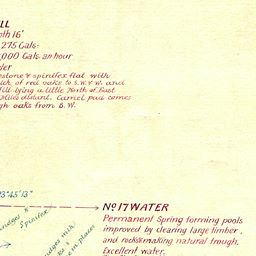 LL
oth 16'
275 Gals.
,000 Gals an hour
ter
estone & spinifex flat with
ick of red oaks to S.W. & W. and
ill lying a little North of East
miles distant. Camel pad comes
gh oaks from B.W.
23° 45' 13"
No 17 WATER
Permanent Spring forming pools
improved by clearing large timber,
and rocks making natural trough.
Excellent water.
ridges &
Spinifex
ridges with
in places